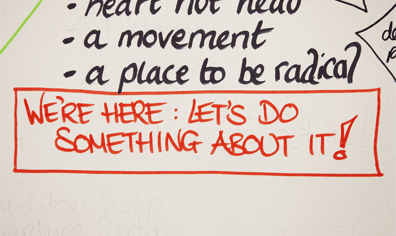 - heart not head
- a movement
- a place to be radical
WE'RE HERE : LET'S DO
SOMETHING ABOUT IT!